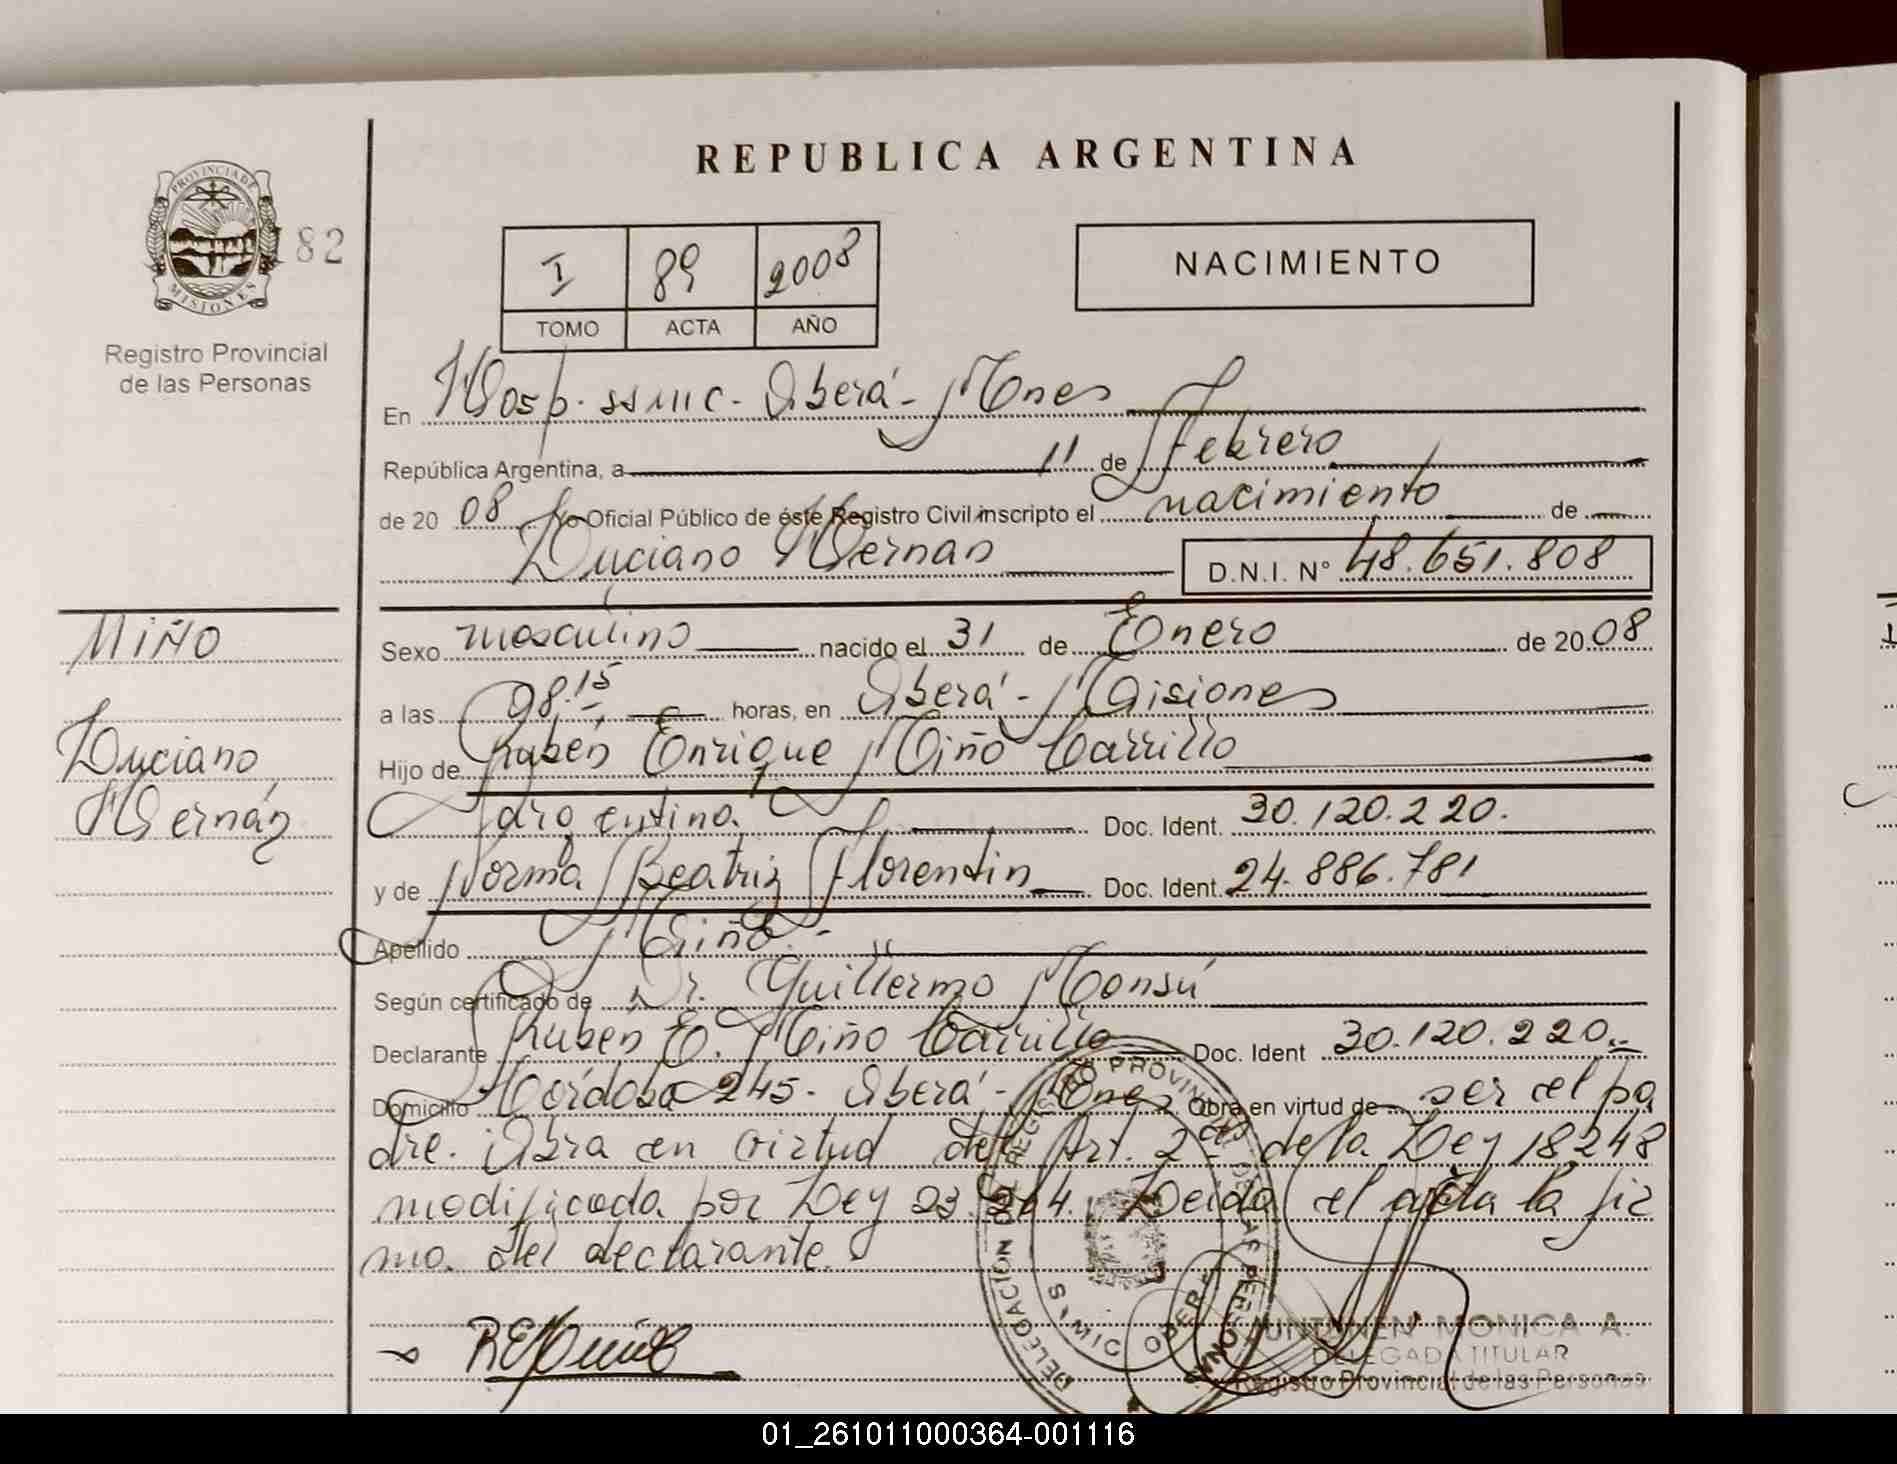 REPUBLICA ARGENTINA
PROVINCIA DE
MISIONES
182
Registro Provincial
de las Personas
I 89 2008
TOMO ACTA AÑO
NACIMIENTO
En Hosp. SSMIC - Oberá - Mnes
República Argentina, a 11 de Febrero
de 20 08 Yo Oficial Público de éste Registro Civil inscripto el nacimiento de
Luciano Hernan D.N.I. N° 48.651.808
MIÑO
Luciano
Hernán
Sexo masculino nacido el 31 de Enero de 20 08
a las 08.15 horas, en Oberá - Misiones
Hijo de Rubén Enrique Miño Carrillo
argentino. Doc. Ident. 30.120.220.
y de Norma Beatriz Florentin Doc. Ident. 24.886.781
Apellido Miño.-
Según certificado de Dr. Guillermo Monsú
Declarante Rubén E. Miño Carrillo Doc. Ident 30.120.220.-
Domicilio Córdoba 245 - Oberá - Mnes Obra en virtud de ser el pa
dre. Obra en virtud del Art. 2º de la Ley 18248
modificada por Ley 23.264. Leida el acta la fir
ma del declarante.
DELEGACION DEL REGISTRO PROVINCIAL DE LAS PERSONAS
JUNTUNEN MONICA A.
DELEGADA TITULAR
Registro Provincial de las Personas
01_261011000364-001116